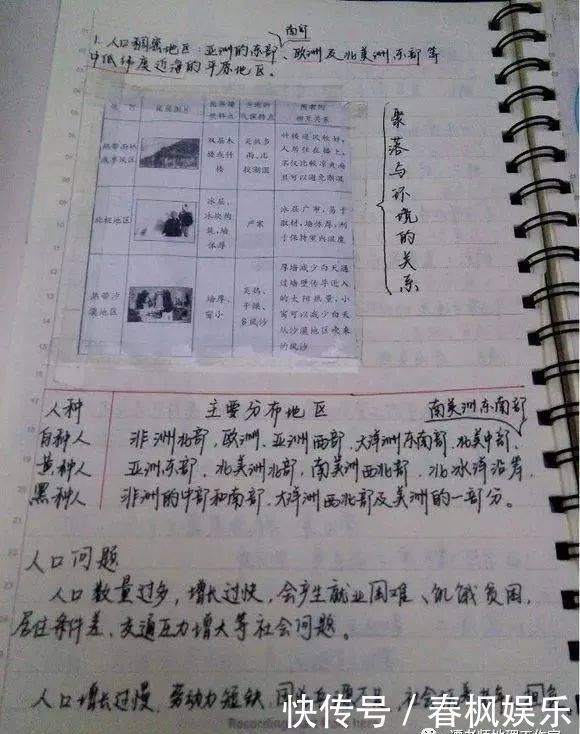 南部
1. 人口稠密地区：亚洲的东部、欧洲及北美洲东部等
中低纬度近海的平原地区。
热带雨林或季风区
双层木楼或竹楼
炎热多雨，比较潮湿
竹楼通风较好，人居住在楼上，不仅比较凉爽而且可以避免潮湿
北极地区
冰层，冰块构筑，墙体厚
严寒
冰层广布，易于取材，墙体厚，利于保持室内温度
热带沙漠地区
墙厚、窗小
炎热、干燥、多风沙
厚墙减少白天通过墙壁传导进入的太阳热量，小窗可以减少白天从沙漠地区吹来的风沙
聚落与环境的关系
人种 主要分布地区 南美洲东南部
白种人 非洲北部，欧洲、亚洲西部、大洋洲东南部、北美中部、
黄种人 亚洲东部、北美洲北部，南美洲西北部、北冰洋沿岸，
黑种人 非洲的中部和南部、大洋洲西北部及美洲的一部分。
人口问题
人口数量过多，增长过快，会产生就业困难、饥饿贫困，
居住条件差、交通压力增大等社会问题。
人口增长过慢，劳动力短缺，
快传号／春风娱乐